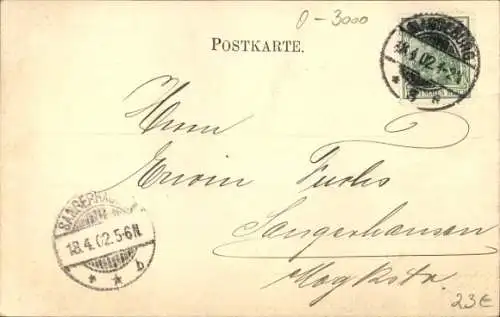 0-3000
POSTKARTE.
18.4.02.
Herrn
Erwin Fuchs
Sangerhausen
SANGERHAU
18.4.02.5-6N.
b
Magkstr.
23€